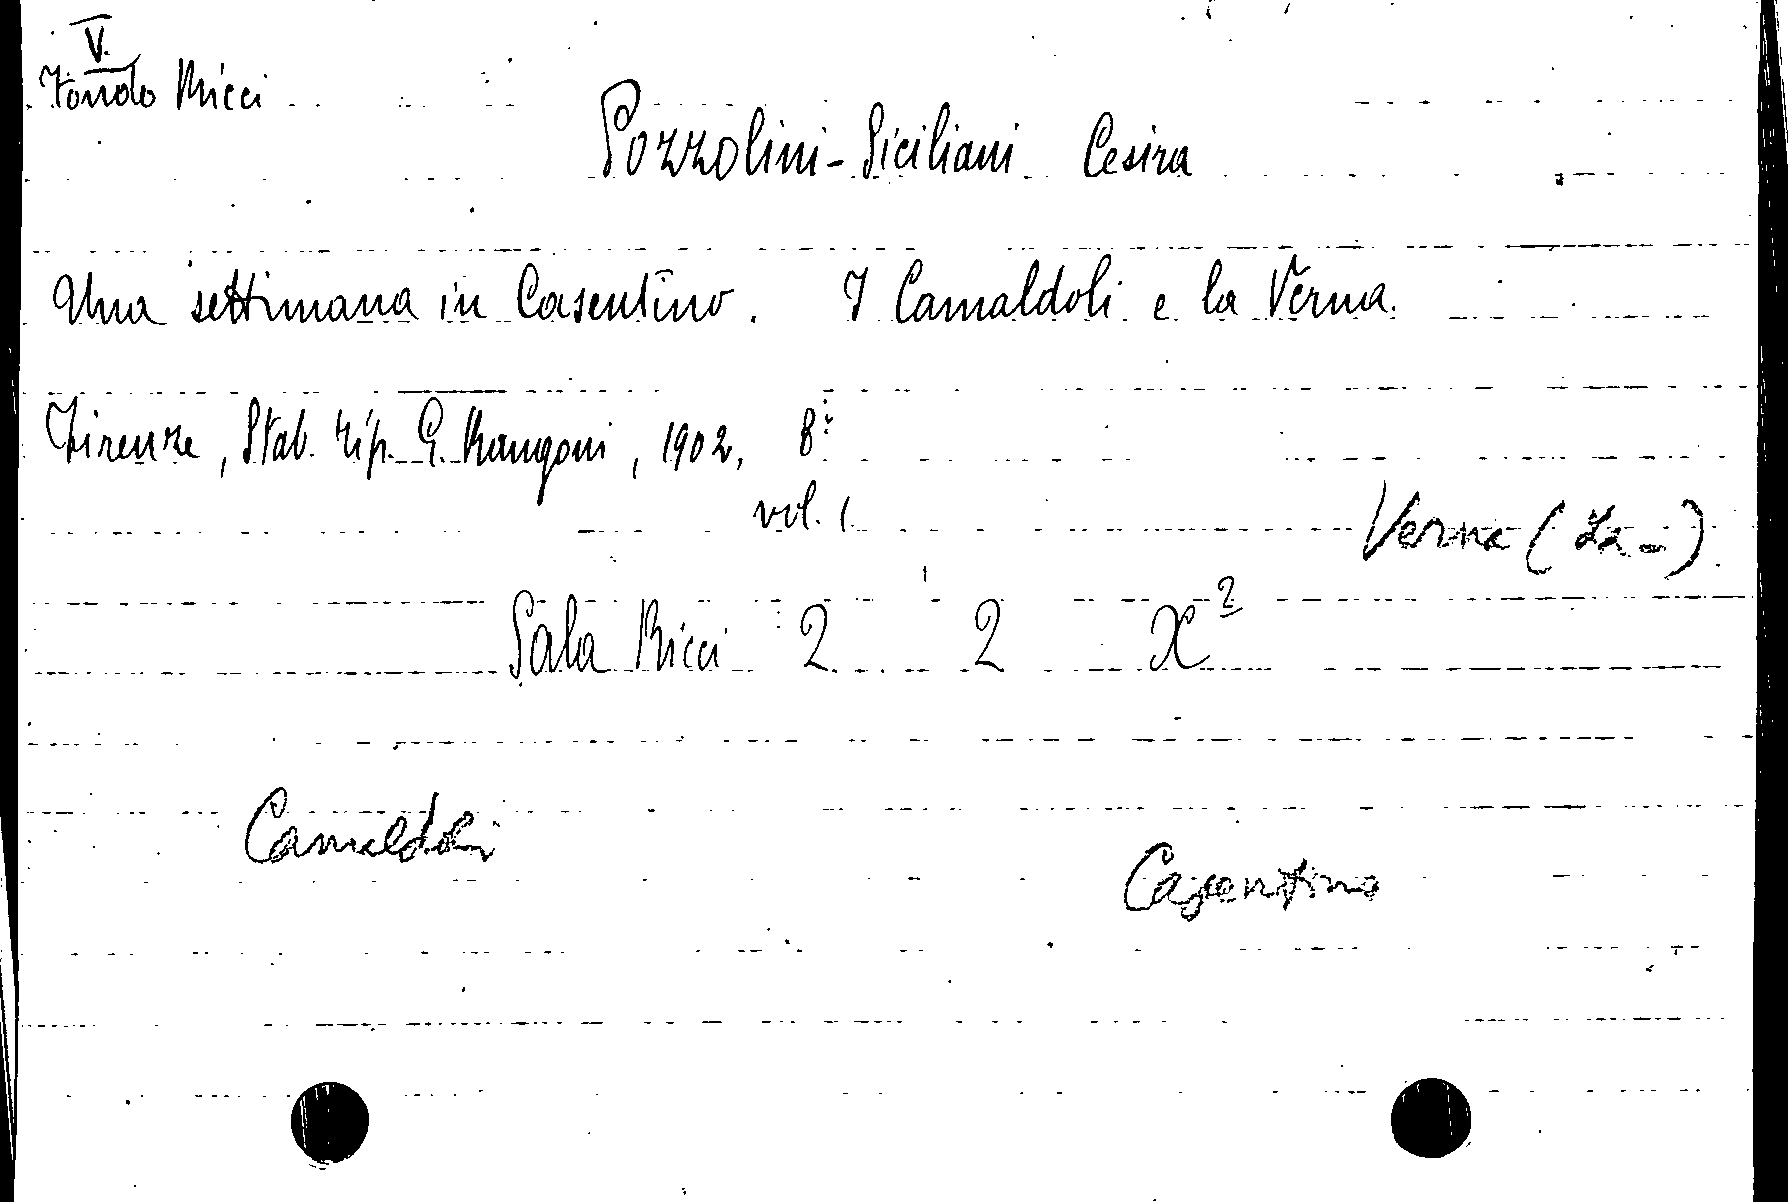 V.
Fondo Ricci
Pozzolini-Siciliani Cesira
Una settimana in Casentino. I Camaldoli e la Verna.
Firenze, Stab. tip. G. Mangoni, 1902, 8°
vol. 1
Verna (La-)
Sala Ricci 2 2 X²
Camaldoli
Casentino